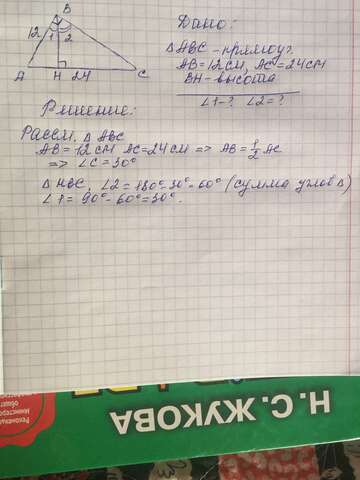 B
12
1 2
A H 24 C
Дано:
△ABC - прямоуг.
AB = 12 см, AC = 24 см
BH - высота
∠1-? ∠2=?
Решение:
Рассм. △ ABC
AB = 12 см AC = 24 см => AB = 1/2 AC
=> ∠C = 30°
△ HBC, ∠2 = 180°-30°-60° (сумма углов △)
∠1 = 90°- 60° = 30°.
Н. С. ЖУКОВА